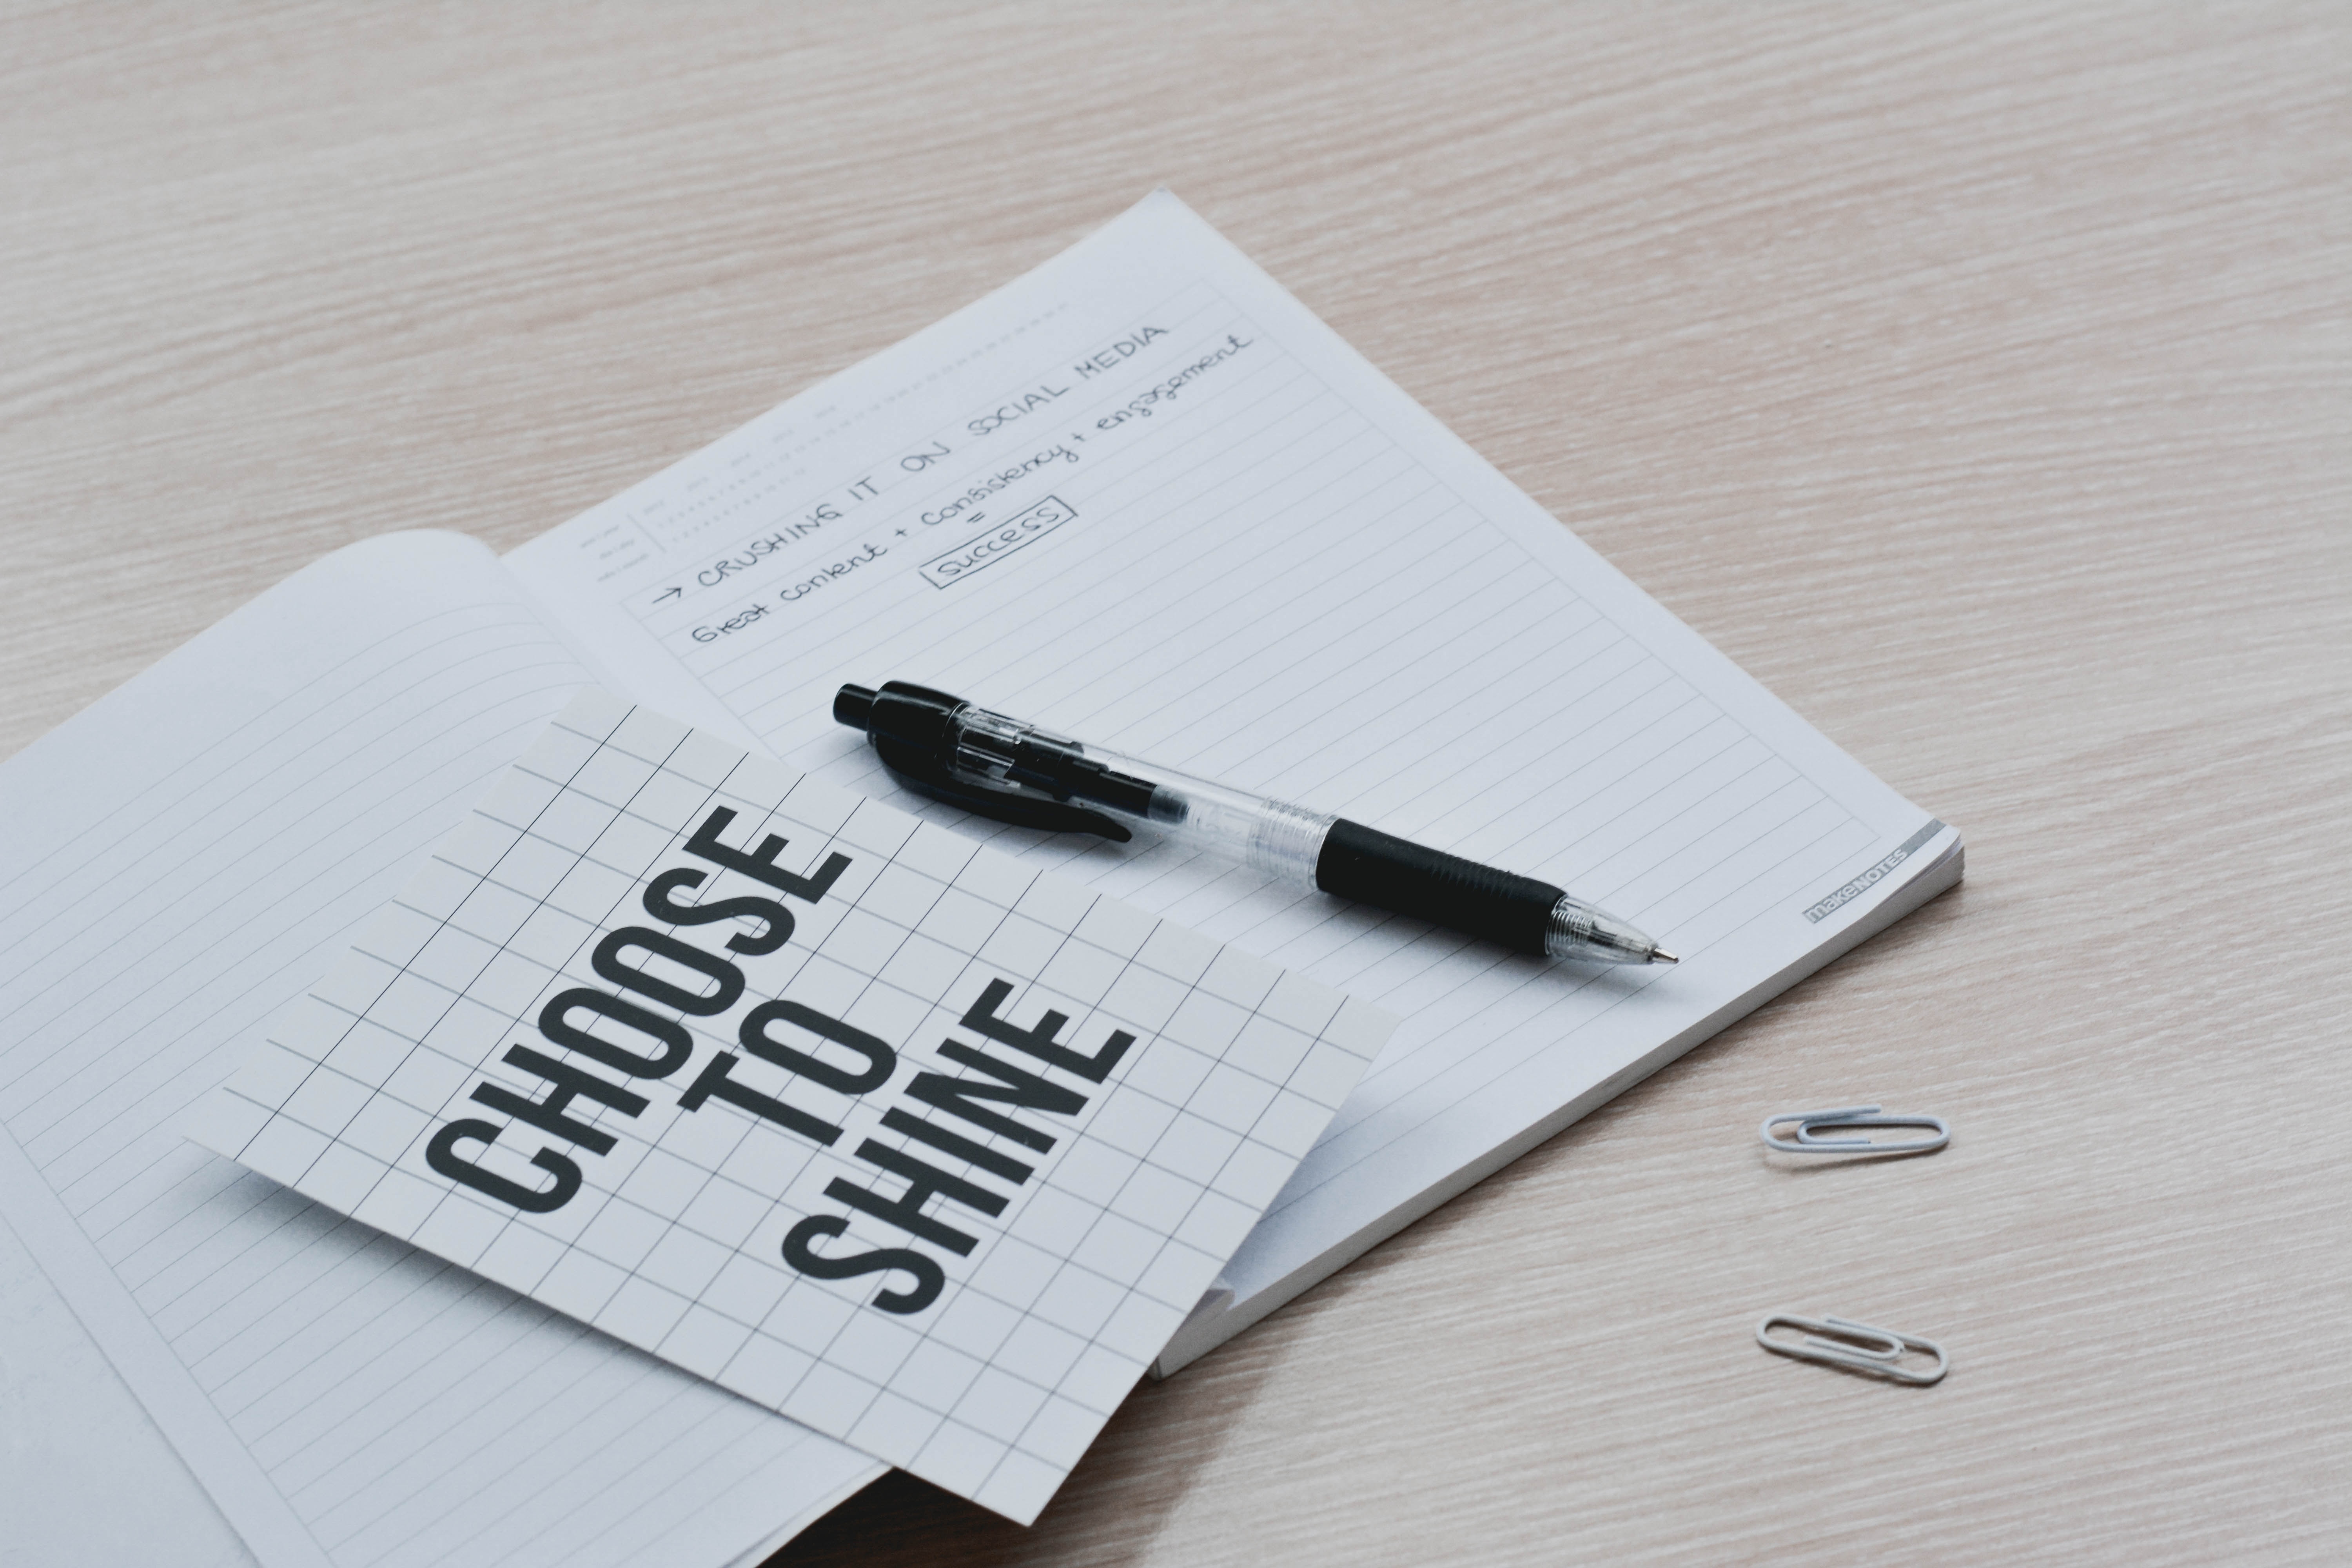 → CRUSHING IT ON SOCIAL MEDIA
Great content + consistency + engagement
=
success
makeNOTES
CHOOSE
TO
SHINE